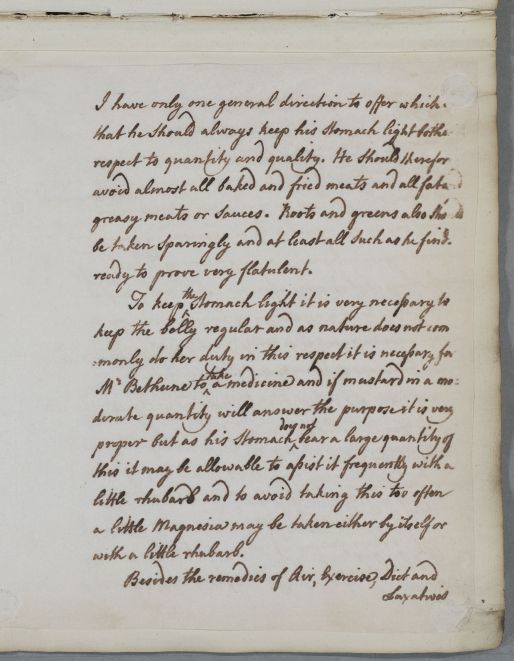 I have only one general direction to offer which
that he should always keep his stomach light both
respect to quantity and quality. He should therefor
avoid almost all baked and fried meats and all fat
greasy meats or sauces. Roots and greens also
be taken sparingly and at least all such as he find
ready to prove very flatulent.
To keep the Stomach light it is very necessary to
keep the belly regular and as nature does not com
:monly do her duty in this respect it is necessary for
Mr Bethune to take a medicine and if mustard in a mo:
derate quantity will answer the purpose it is very
proper but as his stomach does not bear a large quantity of
this it may be allowable to assist it frequently with a
little rhubarb and to avoid taking this too often
a little Magnesia may be taken either by itself or
with a little rhubarb.
Besides the remedies of Air, Exercise, Diet and
Laxatives